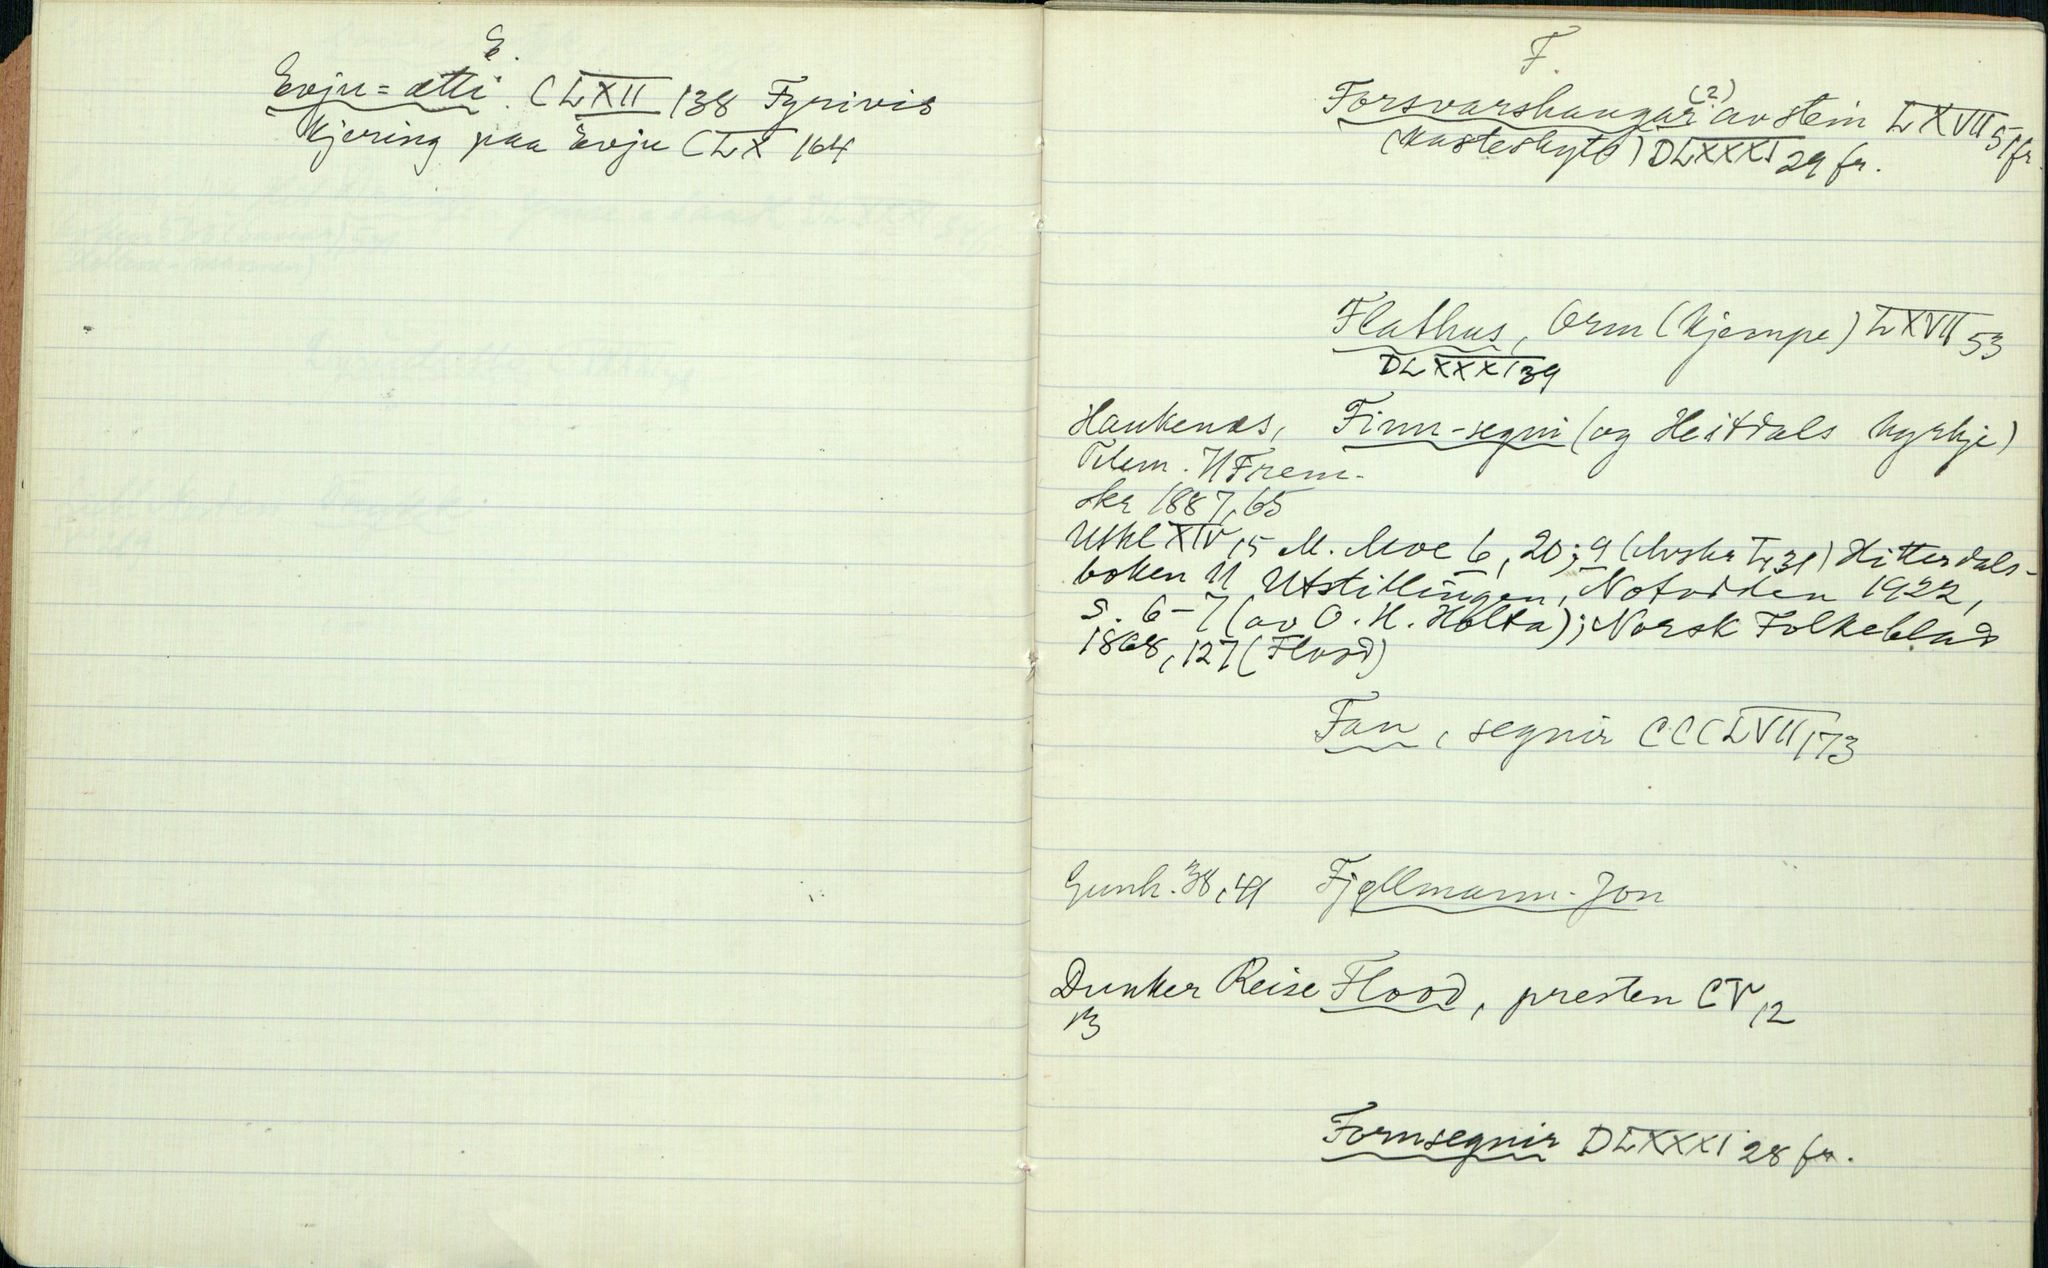 E.
Evju=ætti. CLXII 138 Fyrivis
Kjering paa Evju CLX 164
F.
Forsvarshaugar (?) av stein LXVII 51 fr.
(Kasteskyts) DLXXXI 29 fr.
Flathus, Orm (Kjempe) LXVII 53
DLXXXI 39
Haukenæs, Finn-segni (og Heitdals kyrkje)
Telem. II Frem-
skr 1887, 65
Utkl XIV, 15 M. Moe 6, 20; 9 (Avskr I, 31) Hitterdals-
boken II Utstillingen, Notodden 1922,
S. 6-7 (av O. H. Holta); Norsk Folkeblad
1868, 127 (Flood)
Fan, segnir CCCLVII 173
Gunh. 38, 41 Fjellmann-Jon
Dunker Reise Flood, presten CV, 12
13
Fornsegnir DLXXXI 28 fr.